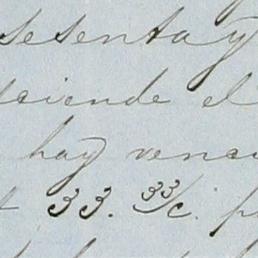 sesenta y
ciende el
hay venci
33. 33/c. p